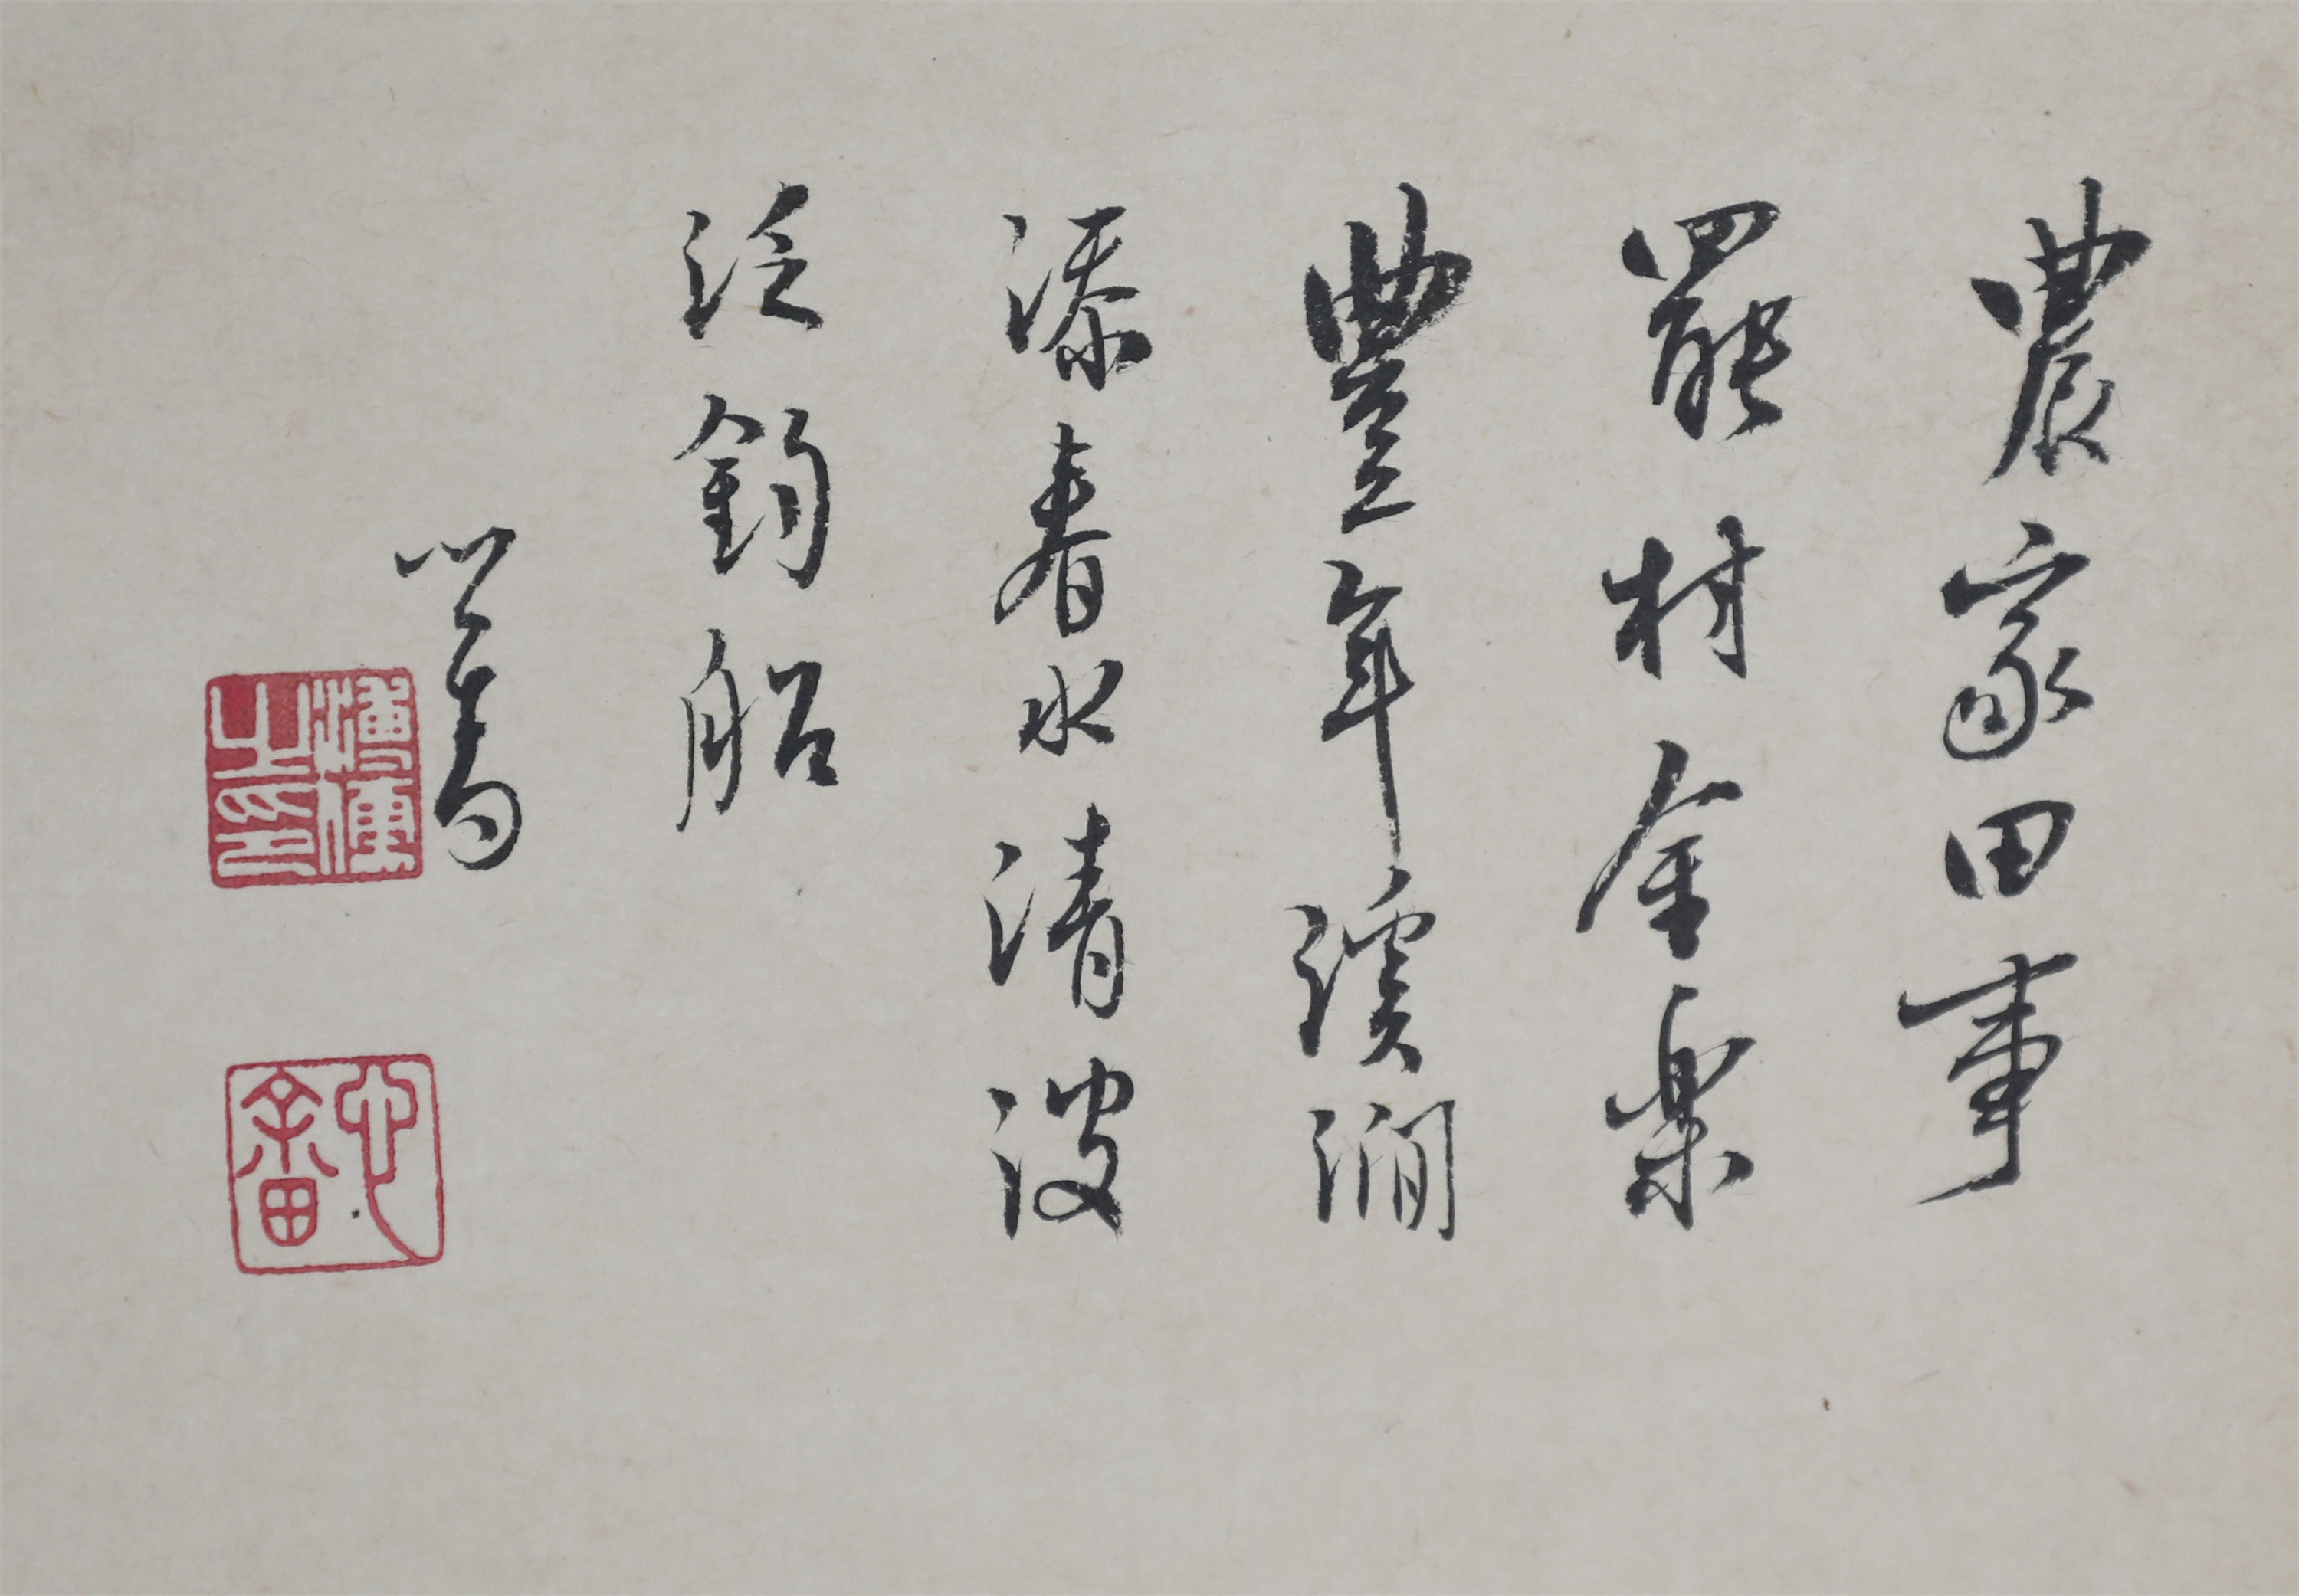 農家田事
罷村全樂
豐年溪澗
添春水清波
泛釣船
心畬
溥儒之印
心畬